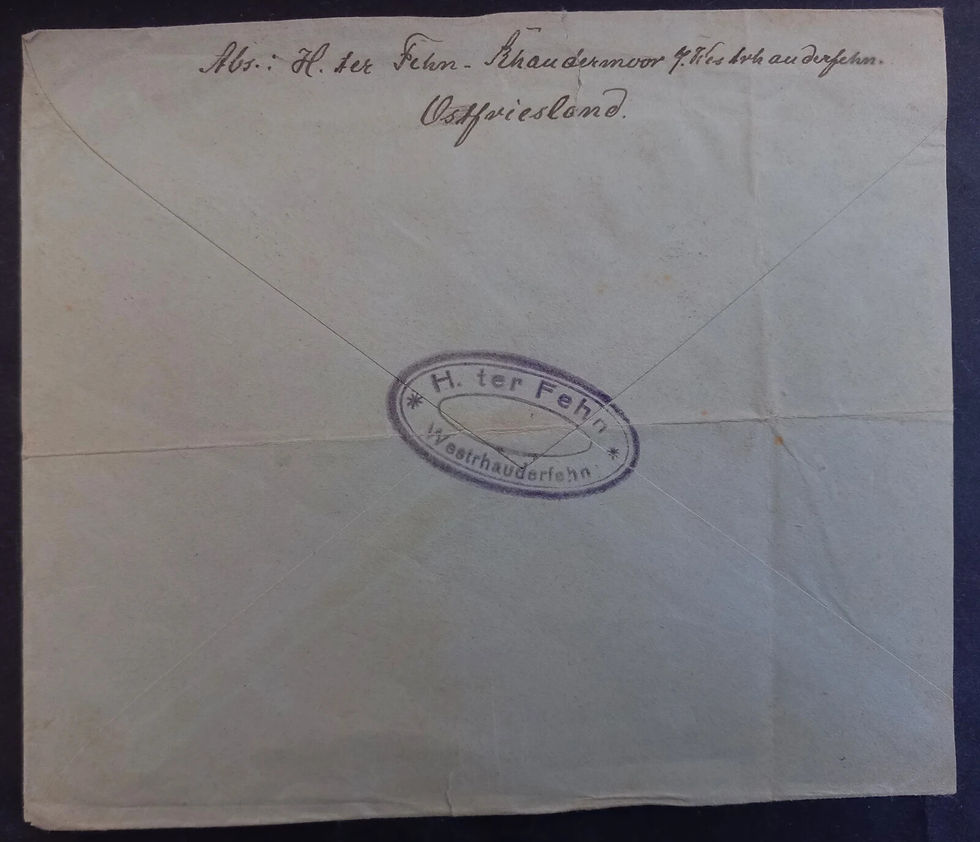 Abs.: H. ter Fehn - Rhaudermoor
Westrhauderfehn.
Ostfriesland.
* H. ter Fehn *
Westrhauderfehn